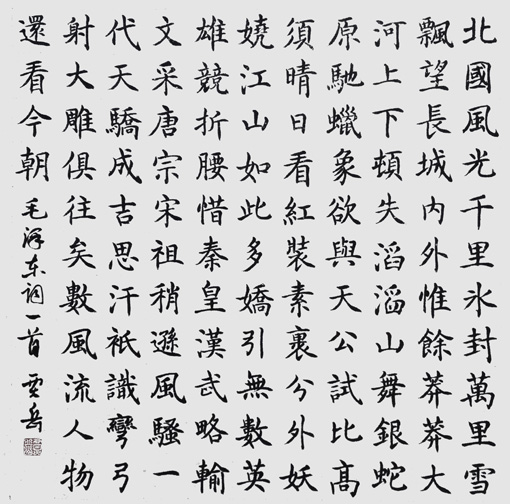 北國風光千里氷封萬里雪
飄望長城內外惟餘莽莽大
河上下頓失滔滔山舞銀蛇
原馳蠟象欲與天公試比高
須晴日看紅裝素裹分外妖
嬈江山如此多嬌引無數英
雄競折腰惜秦皇漢武略輸
文采唐宗宋祖稍遜風騷一
代天驕成吉思汗衹識彎弓
射大雕俱往矣數風流人物
還看今朝 毛泽东词一首